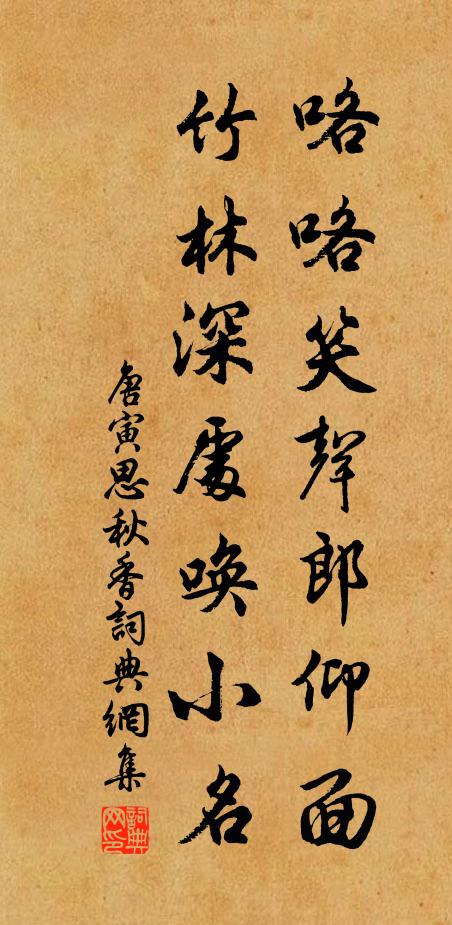 咯咯笑聲郎仰面
竹林深處喚小名
唐寅思秋香詞典網集
詞典
网印